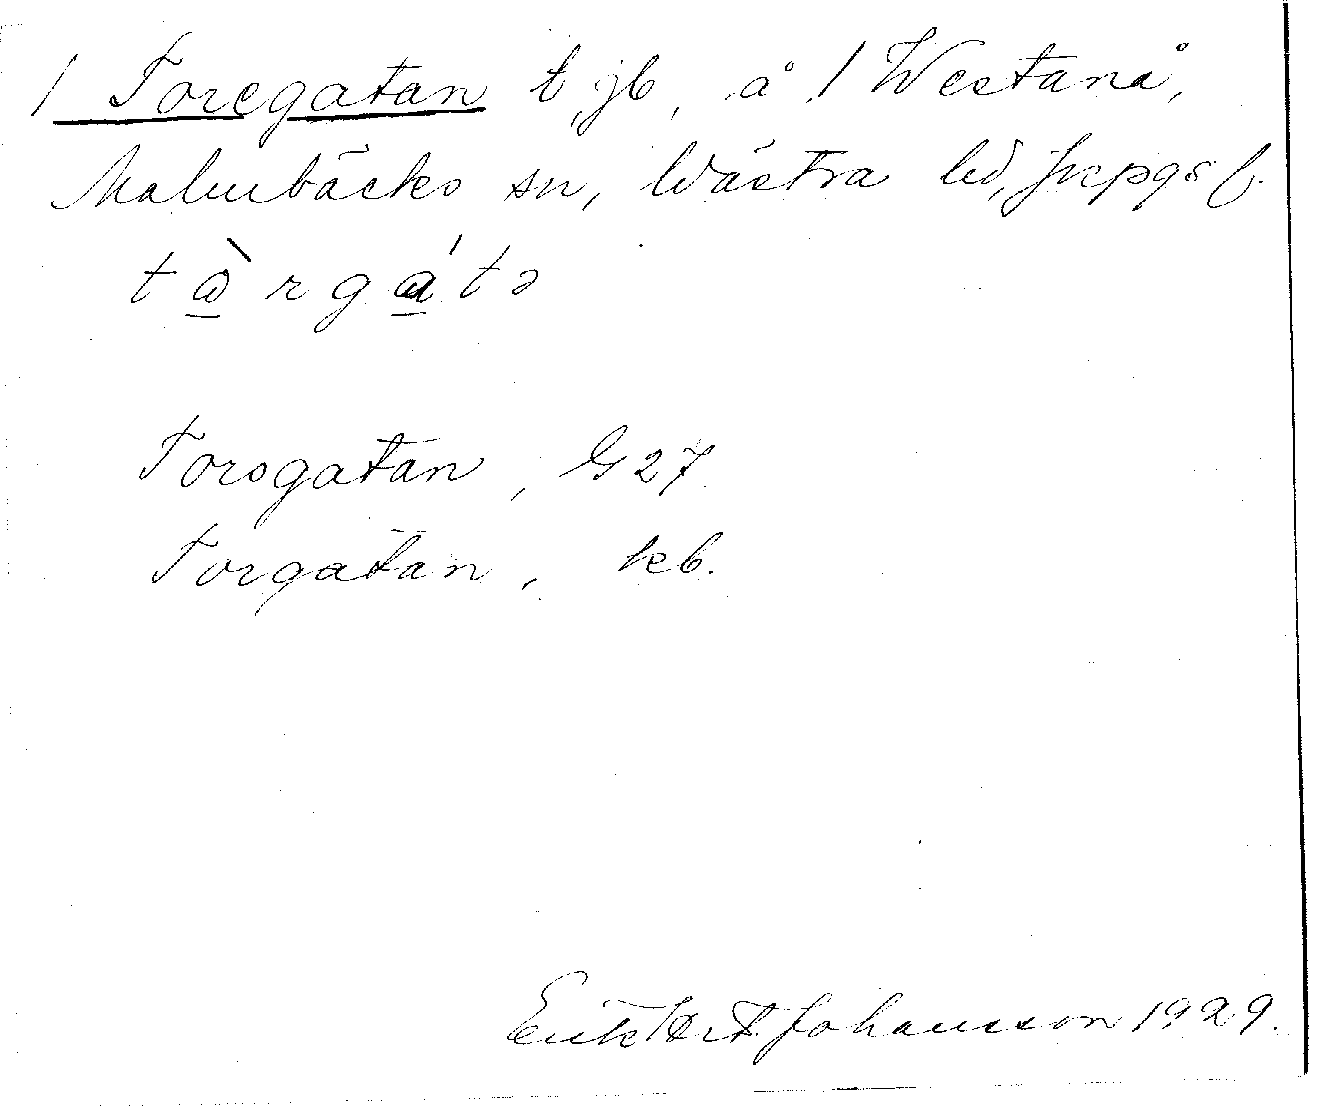 / Toregatan t, jb, å / Westanå,
Malmbäcks sn, Wästra hd, Jkpgs l.
t ὼ r g á t ə
Torsgatan, G 27
Torgatan, kb.
Erik Hj. Johansson 1929.